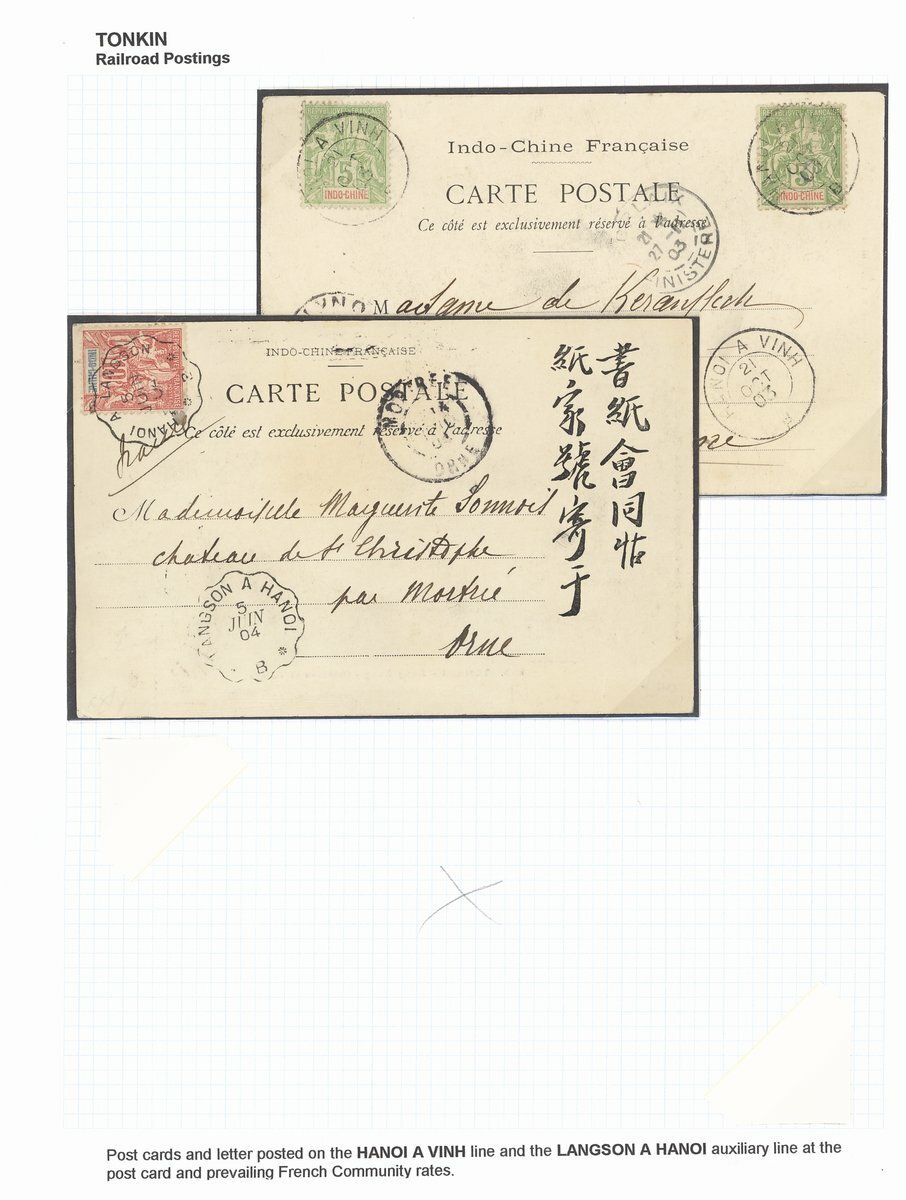 TONKIN
Railroad Postings
REPUBLIQUE FRANÇAISE
A VINH
5
INDO-CHINE
REPUBLIQUE FRANÇAISE
5
INDO-CHINE
B
Indo-Chine Française
CARTE POSTALE
Ce côté est exclusivement réservé à l'adresse
21
27
03
FINISTERE
Madame de
HANOI A VINH
21
OCT
03
INDO-CHINE FRANÇAISE
CARTE POSTALE
Ce côté est exclusivement réservé à l'adresse
10
A LANGSON
HANOI
MORTREE
ORNE
書紙會同帖
紙家號寄于
Mademoiselle Marguerite
chateau de St Christophe
par Mortrée
Orne
LANGSON A HANOI
5
JUIN
04
B
Post cards and letter posted on the HANOI A VINH line and the LANGSON A HANOI auxiliary line at the
post card and prevailing French Community rates.